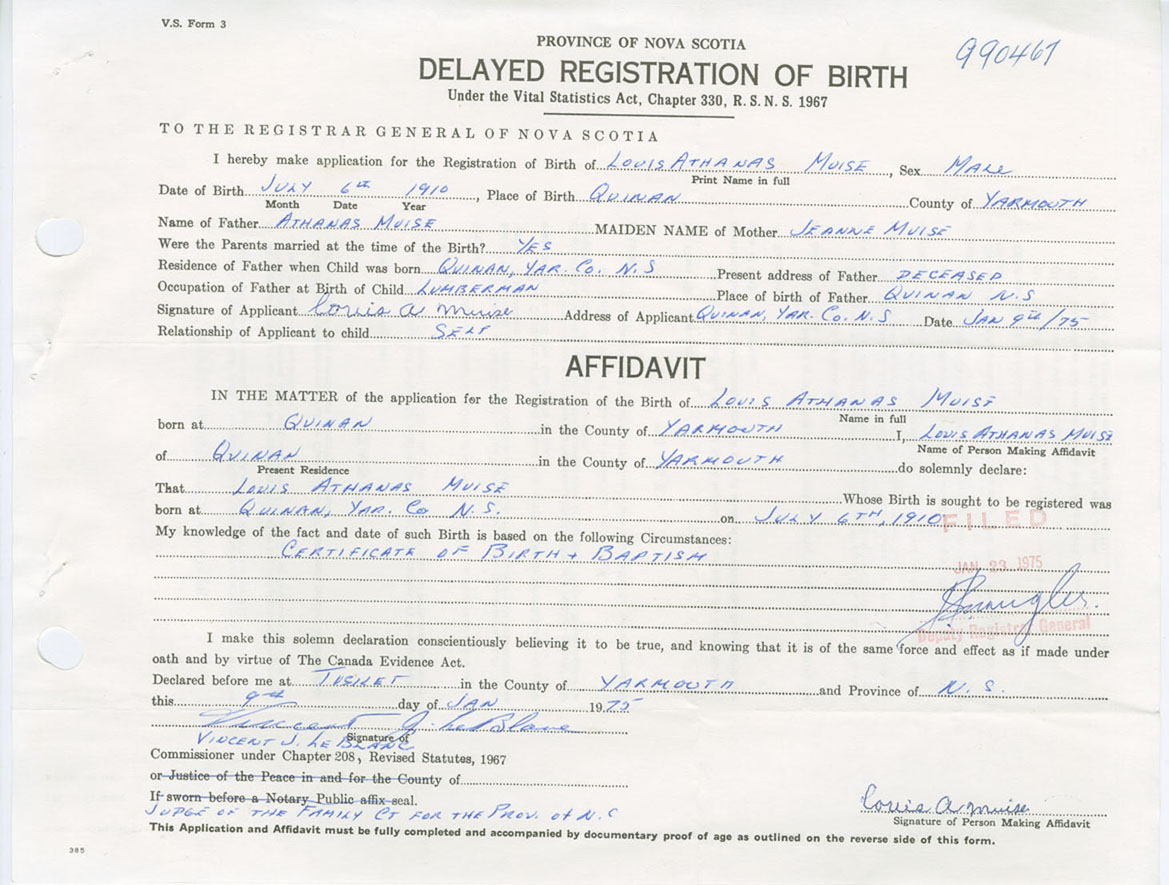 V.S. Form 3
PROVINCE OF NOVA SCOTIA
990467
DELAYED REGISTRATION OF BIRTH
Under the Vital Statistics Act, Chapter 330, R.S.N.S. 1967
TO THE REGISTRAR GENERAL OF NOVA SCOTIA
I hereby make application for the Registration of Birth of LOUIS ATHANAS MUISE, Sex MALE
Print Name in full
Date of Birth JULY 6th 1910, Place of Birth QUINAN County of YARMOUTH
Month Date Year
Name of Father ATHANAS MUISE MAIDEN NAME of Mother JEANNE MUISE
Were the Parents married at the time of the Birth? YES
Residence of Father when Child was born QUINAN, YAR. CO. N.S Present address of Father DECEASED
Occupation of Father at Birth of Child LUMBERMAN Place of birth of Father QUINAN N.S
Signature of Applicant Louis A Muise Address of Applicant QUINAN, YAR. CO. N.S Date JAN 9th/75
Relationship of Applicant to child SELF
AFFIDAVIT
IN THE MATTER of the application for the Registration of the Birth of LOUIS ATHANAS MUISE
Name in full
born at QUINAN in the County of YARMOUTH I, LOUIS ATHANAS MUISE
Name of Person Making Affidavit
of QUINAN in the County of YARMOUTH do solemnly declare:
Present Residence
That LOUIS ATHANAS MUISE Whose Birth is sought to be registered was
born at QUINAN, YAR. CO N.S. on JULY 6TH, 1910
FILED
My knowledge of the fact and date of such Birth is based on the following Circumstances:
CERTIFICATE OF BIRTH + BAPTISM
JAN 23 1975
Deputy Registrar General
I make this solemn declaration conscientiously believing it to be true, and knowing that it is of the same force and effect as if made under
oath and by virtue of The Canada Evidence Act.
Declared before me at TUSKET in the County of YARMOUTH and Province of N.S.
this 9th day of JAN 1975
Vincent J. LeBlanc
VINCENT J. LE BLANC
Signature of
Commissioner under Chapter 208, Revised Statutes, 1967
or Justice of the Peace in and for the County of
If sworn before a Notary Public affix seal.
JUDGE OF THE FAMILY CT FOR THE PROV. OF N.S
Louis A Muise
Signature of Person Making Affidavit
This Application and Affidavit must be fully completed and accompanied by documentary proof of age as outlined on the reverse side of this form.
385